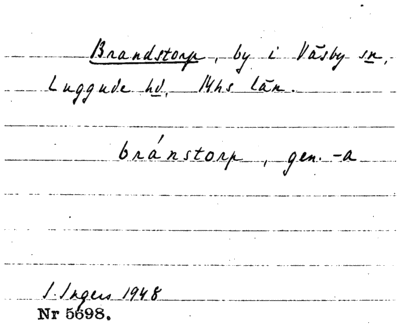 Brandstorp, by i Väsby sn,
Luggude hd, Mhs län.
bránstorp, gen. -a
I. Ingers 1948
Nr 5698.